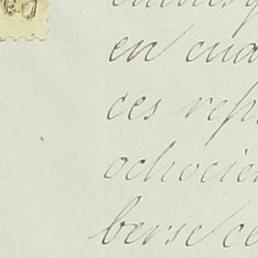 en cua
ces rep
ochocien
berse ce